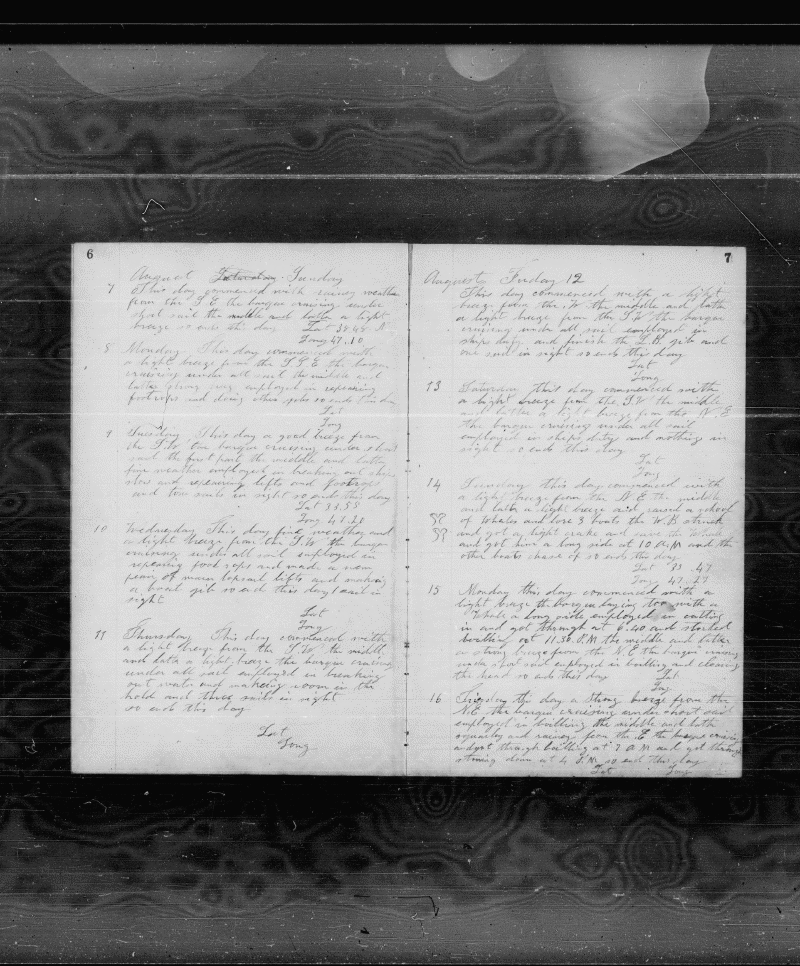 6
August Saturday Sunday
7 This day commenced with rainey weather
from the S.E the barque cruising under
short sail the middle and latter a light
breeze so ends this day Lat 38.48 N
Long 47.10
8 Monday This day commenced with
a light breeze from the S.S.E. the barque
cruising under all sail the middle and
latter strong employed in repearing
footrops and doing other jobs so ends this day
Lat
Long
9 Tuesday This day a good breeze from
the S.W. the barque cruising under short
sail the first part the middle and latter
fine weather employed in breaking out
and repearing lifts and footrops
and two sails in sight so ends this day
Lat 33.58
Long 48.28
10 Wednesday This day fine weather and
a light breeze from the S.W the barque
cruising under all sail employed in
repearing foot rops and made a new
pear of main topsail lifts and making
a boat jib so end this day 1 sail in
sight
Lat
Long
11 Thursday This day commenced with
a light breeze from the S.W. the middle
and latte a light breeze the barque cruising
under all sail employed in breaking
out water and makeing room in the
hold and three sails in sight
so ends this day
Lat
Long
7
Augusts Friday 12
This day commenced with a light
breeze from the W the middle and latte
a light breeze from the S.W the barque
cruising under all sail employed in
ships duty and finish the L.B jib and
one sail in sight so ends this day
Lat
Long
13 Saturday this day commenced with
a light breeze from the S.W the middle
and latter a light breeze from the N.E
the barque cruising under all sail
employed in ships dutys and nothing in
sight so ends this day
Lat
Long
14 Sunday this day commenced with
a light breeze from the N.E the middle
and latte a light breeze and raised a school
of Whales and lore 3 boats the W.B struck
and got my line and the Whale
and got him a long side at 10 A.M and the
other boats chase of so ends this day
Lat 33.47
Long 47.27
15 Monday this day commenced with a
light breeze the barque laying too with a
Whale a long side employed in cutting
in and got through at 6.40 and started
boilling at 11.30 P.M the middle and latter
a strong breeze from the N.E the barque cruising
under short sail employed in boilling and cleaning
the head so ends this day Lat
Long
16 Tuesday the day a strong breeze from the
N.E the barque cruising under short sail
employed in boilling the middle and latte
squaley and rainey from the E the barque cruising
and got through boilling at 7 A.M and got through
stowing down at 4 P.M so end this day
Lat Long